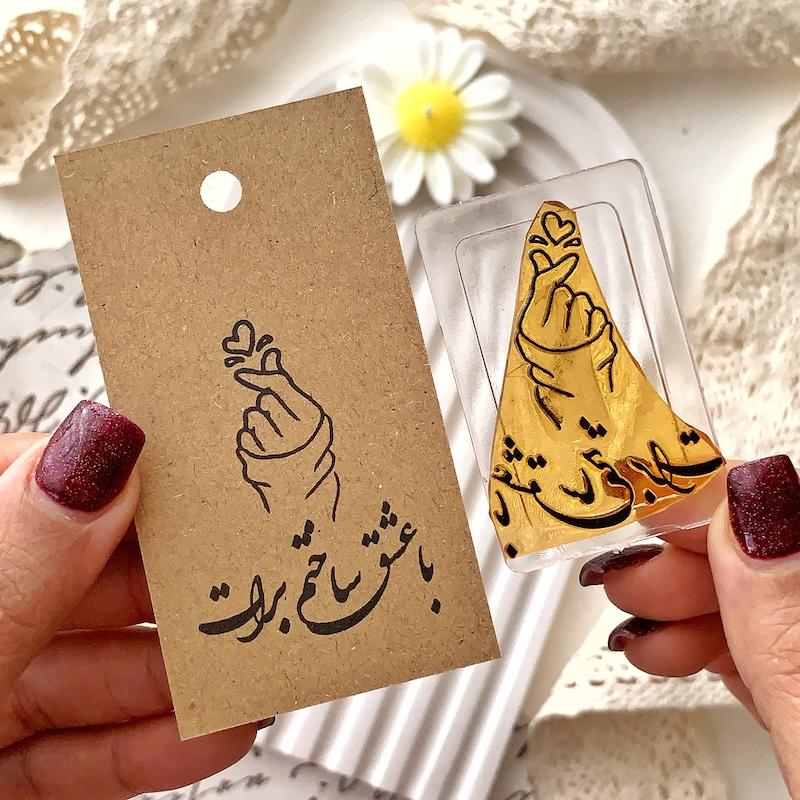 با عشق ساختم برات